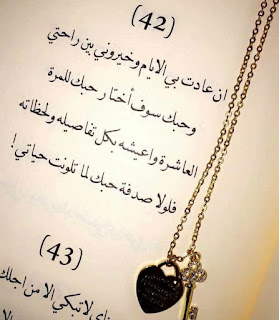 (42)
ان عادت بي الايام وخيروني بين راحتي
وحبك سوف أختار حبك للمرة
العاشرة واعيشه بكل تفاصيله ولحظاته
فلولا صدفة حبك لما تلونت حياتي!
(43)
لا تبكي الا من اجلك